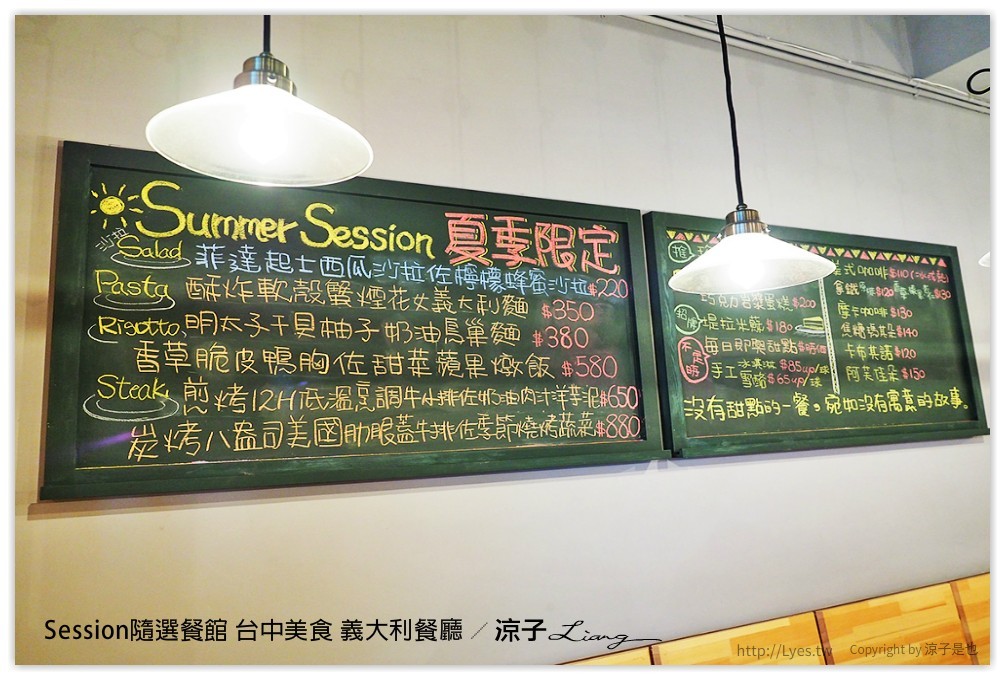 Summer Session 夏季限定
沙拉
Salad 菲達起士西瓜沙拉佐檸檬蜂蜜沙拉$220
Pasta 酥炸軟殼蟹煙花女義大利麵 $350
Risotto 明太子干貝柚子奶油鳥巢麵 $380
香草脆皮鴨胸佐甜菜蘋果燉飯 $580
Steak 煎烤12H低溫烹調牛小排佐奶油肉汁洋蔥泥$650
炭烤八盎司美國肋眼蓋牛排佐季節燒烤蔬菜$880
推
巧克力岩漿蛋糕 $200
招牌 堤拉米蘇 $180
每日即興甜點$時價
手工 冰淇淋 $85up/球
雪酪 $65up/球
美式咖啡 $110
拿鐵 $120 $130
摩卡咖啡 $130
焦糖瑪其朵 $140
卡布其諾 $120
阿芙佳朵 $150
沒有甜點的一餐。宛如沒有寓意的故事。
Session隨選餐館 台中美食 義大利餐廳 / 涼子 Liang
http://Lyes.tw Copyright by 涼子是也